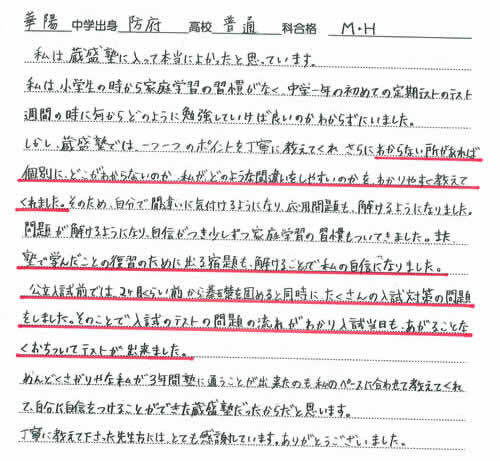 華陽 中学出身 防府 高校 普通 科合格 M・H
私は蔵盛塾に入って本当によかったと思っています。
私は、小学生の時から家庭学習の習慣がなく、中学一年の初めての定期テストのテスト
週間の時に何からどのように勉強していけば良いのかわからずにいました。
しかし、蔵盛塾では、一つ一つのポイントを丁寧に教えてくれ さらにわからない所があれば
個別に、どこがわからないのか、私がどのような間違いをしやすいのかを、わかりやすく教えて
くれました。そのため、自分で間違いに気付けるようになり、応用問題も、解けるようになりました。
問題が解けるようになり、自信がつき少しずつ家庭学習の習慣もついてきました。また、
塾で学んだことの復習のために出る宿題も、解けることで私の自信になりました。
公立入試前では、2ヶ月くらい前から基礎を固めると同時に、たくさんの入試対策の問題
をしました。そのことで入試のテストの問題の流れがわかり入試当日も、あがることな
くおちついてテストが出来ました。
めんどくさがりやな私が3年間塾に通うことが出来たのも私のペースに合わせて教えてくれ
て、自分に自信をつけることができた蔵盛塾だったからだと思います。
丁寧に教えて下さった先生方には、とても感謝しています。ありがとうございました。